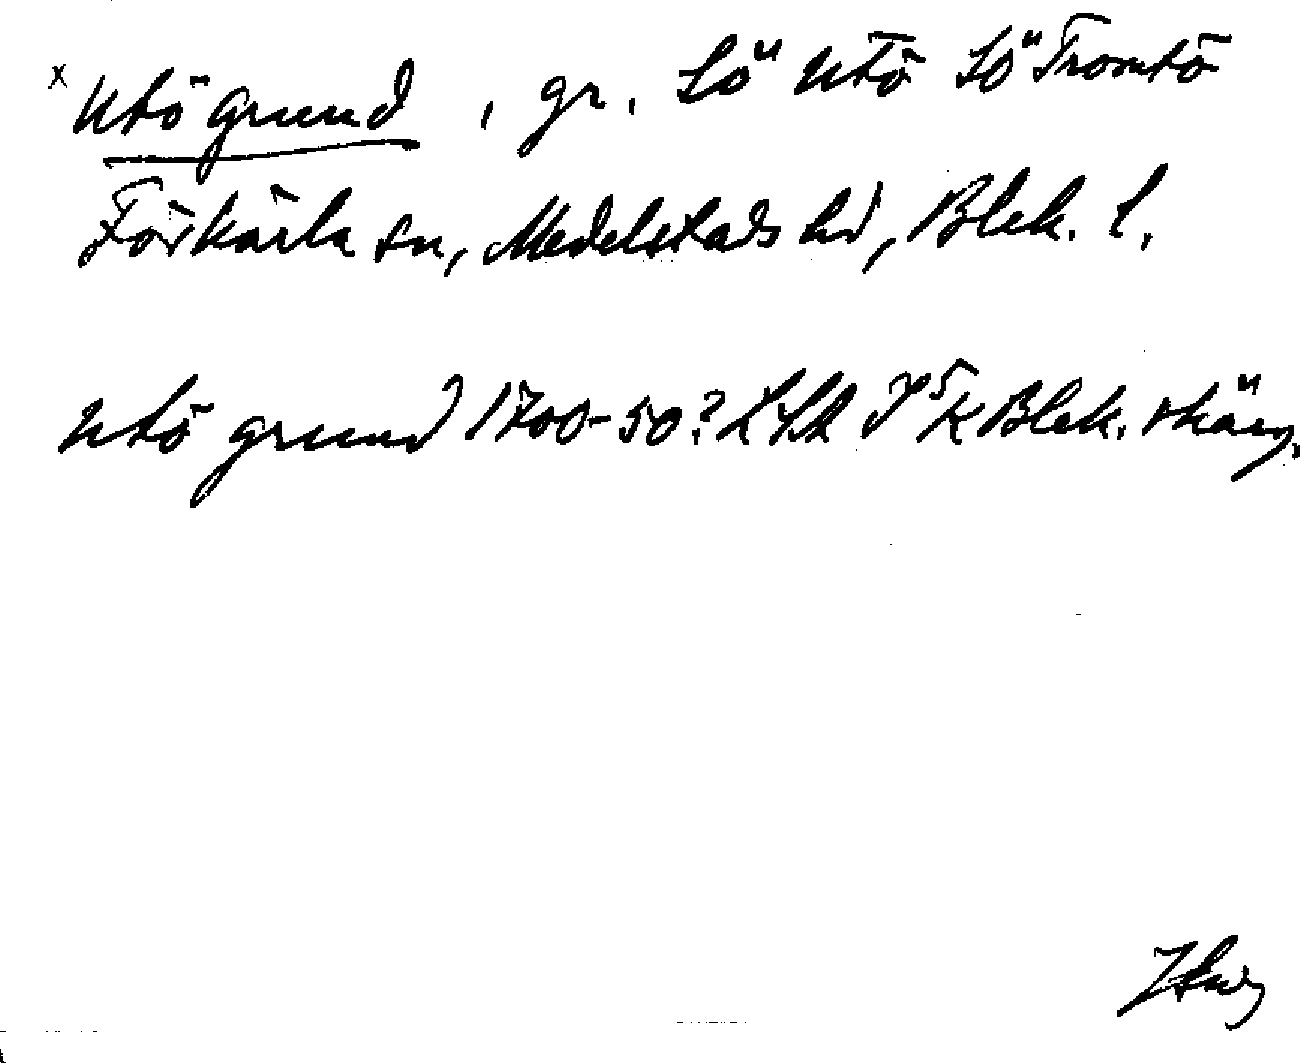 x Utö grund, gr. SÖ" Utö SÖ" Tromtö
Förkärla sn, Medelstads hd, Blek. l.
Utö grund 1700-50? Blek. skärg.